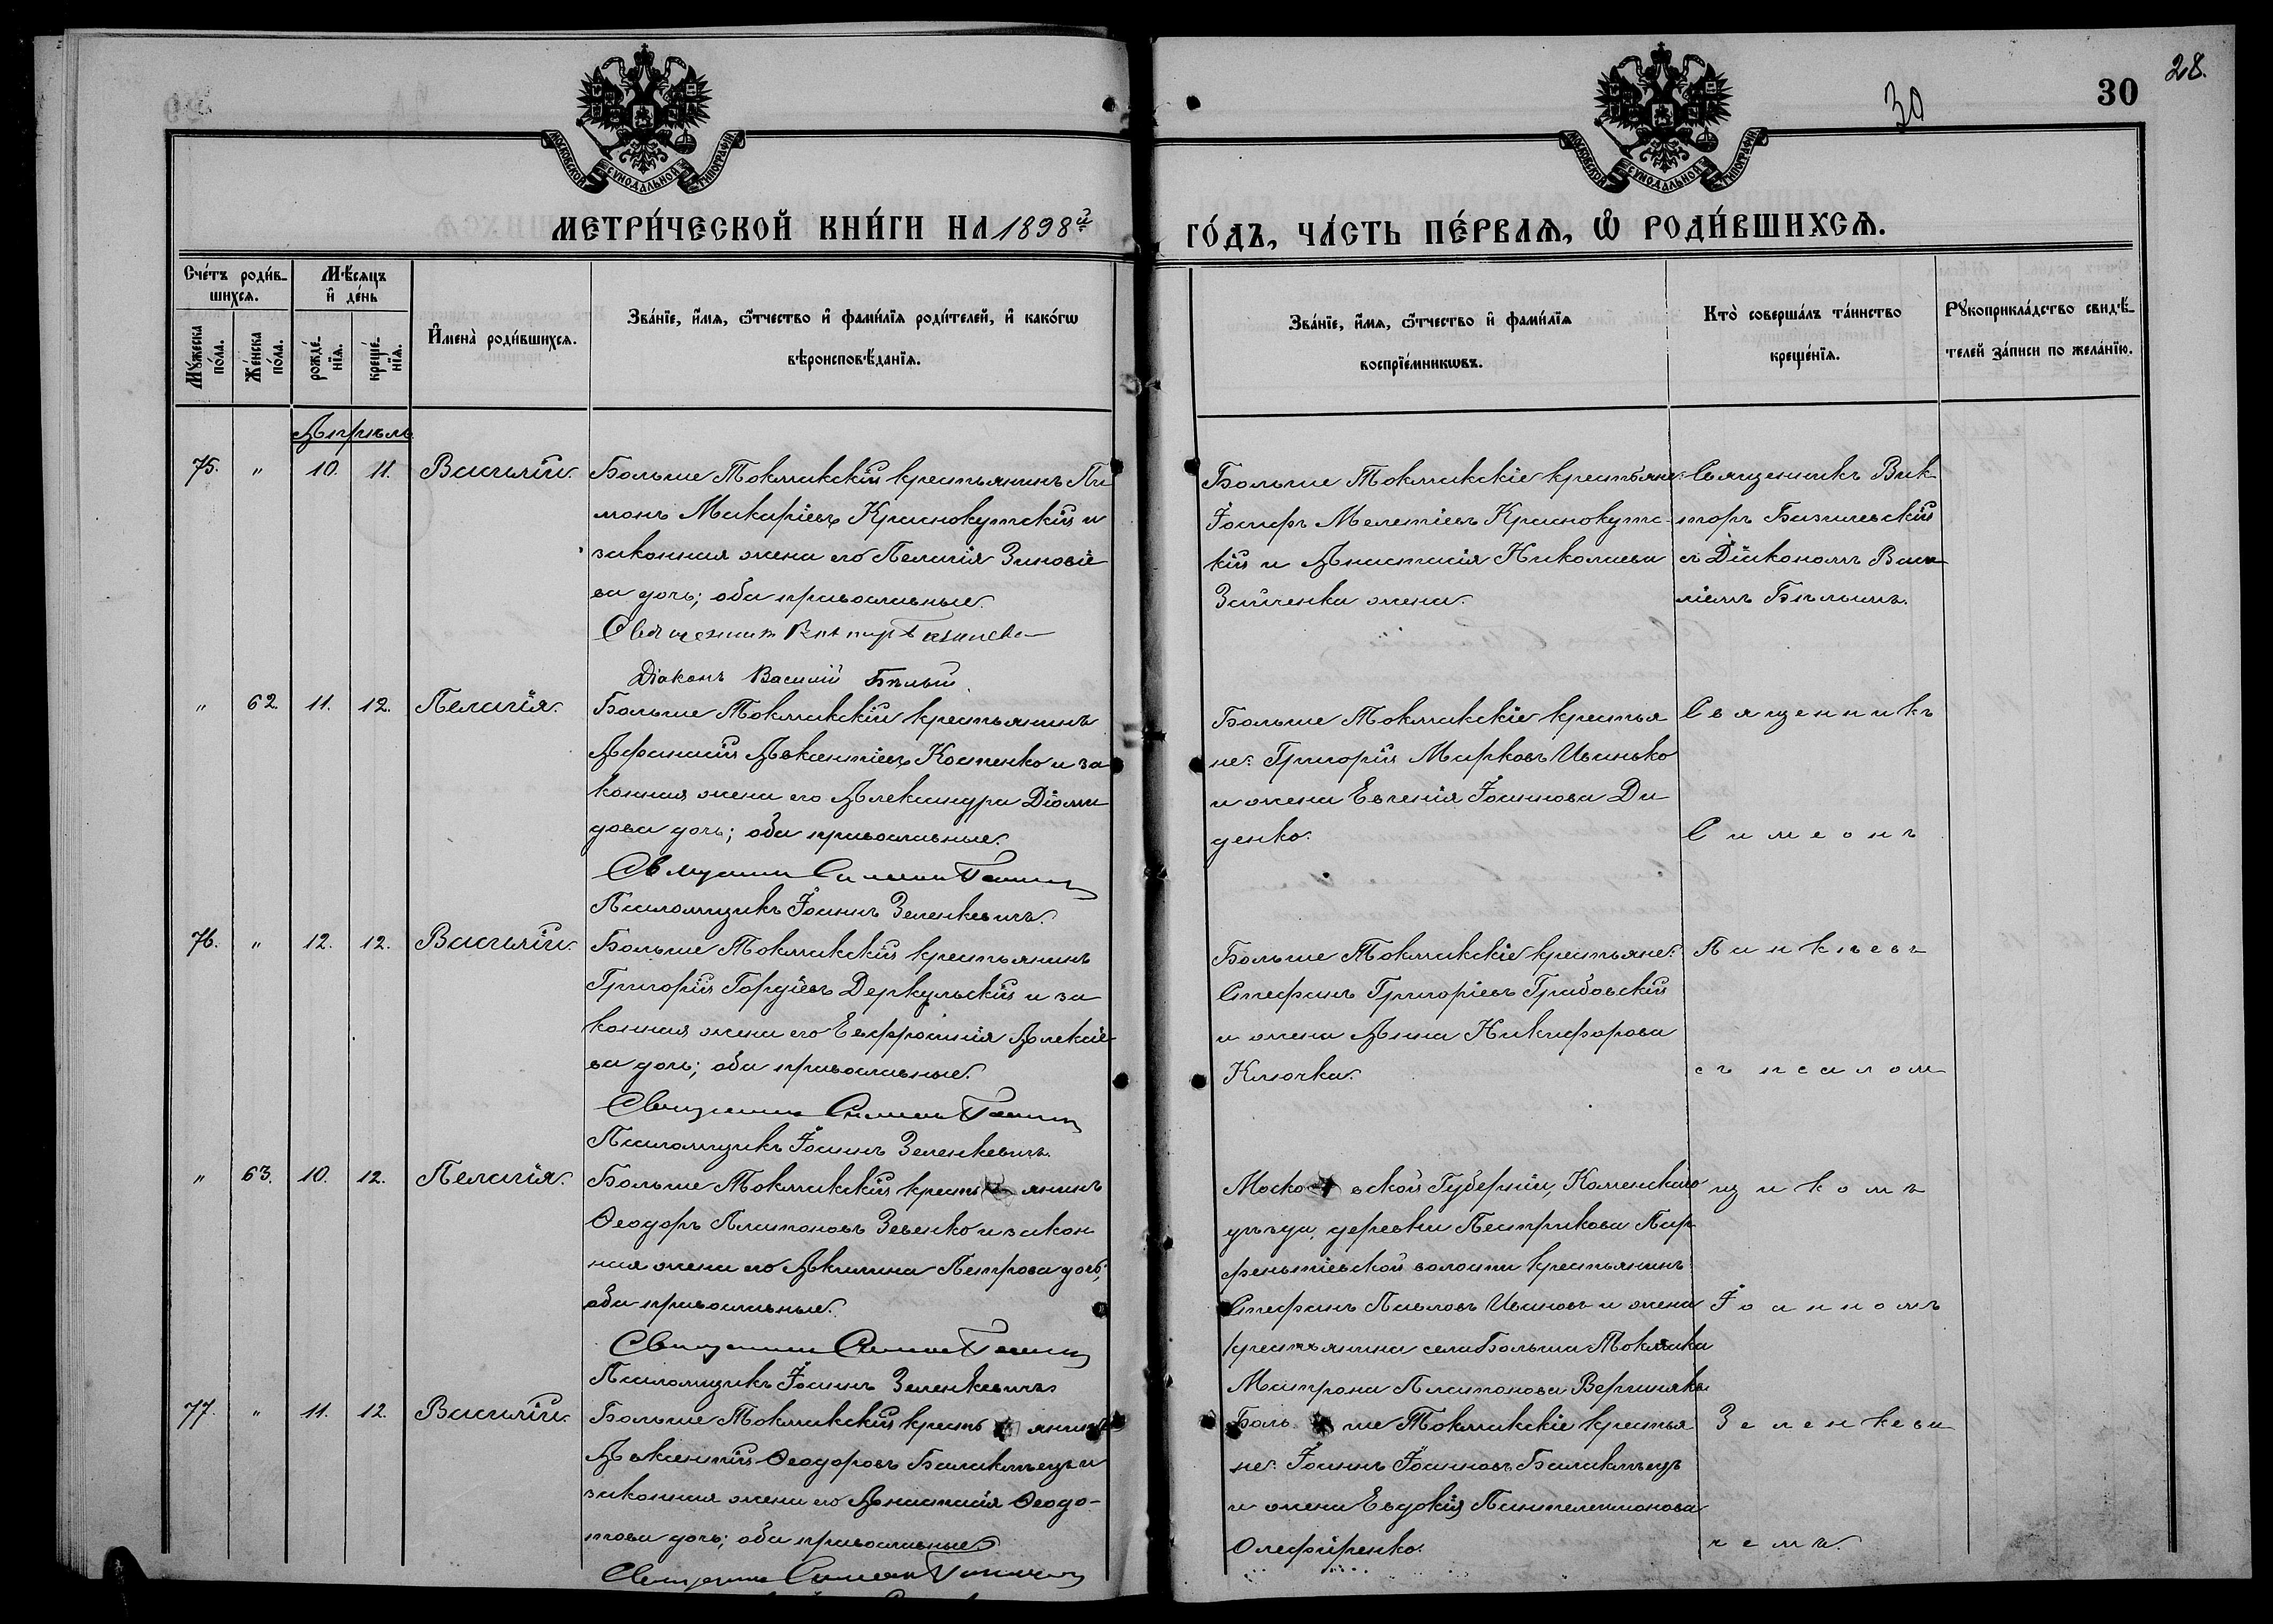 28.
30
30
МОСКОВСКОЙ СѴНОДАЛЬНОЙ ТИПОГРАФІИ
МОСКОВСКОЙ СѴНОДАЛЬНОЙ ТИПОГРАФІИ
МЕТРИ́ЧЕСКОЙ КНИ́ГИ НА 1898й
ГО́ДЪ, ЧА́СТЬ ПЕ́РВАѦ, Ѡ РОДИ́ВШИХСѦ.
Сче́тъ роди́в-
шихсѧ.
Мѣ́сѧцъ
и҆ де́нь
Мꙋ́жеска
по́ла.
Же́нска
по́ла.
рожде́-
нїѧ.
креще́-
нїѧ.
И҆мена̀ роди́вшихсѧ.
Зва́нїе, и҆́мѧ, ѻ҆́тчество и҆ фами́лїѧ роди́телей, и҆ како́гѡ
вѣроисповѣ́данїѧ.
Зва́нїе, и҆́мѧ, ѻ҆́тчество и҆ фами́лїѧ
воспрїе́мникѡвъ.
Кто̀ соверша́лъ та́инство
креще́нїѧ.
Рꙋкоприкла́дство свидѣ́-
телей за́писи по жела́нїю.
Апрѣль
75. " 10. 11. Василій.
Больше Токмакскій крестьянинъ Пи
монъ Макаріевъ Краснокутскій и
законная жена его Пелагія Зиновіе
ва дочь; оба православные.
Священникъ Викторъ
Діаконъ Василій Бѣлый
Больше Токмакскіе крестьяне:
Іосифъ Мелетіевъ Краснокутс-
кій и Анастасія Николаева
Зайченка жена.
Священникъ Вик
торъ Базилевскій
съ Діакономъ Васи
ліемъ Бѣлымъ.
" 62. 11. 12. Пелагія.
Больше Токмакскій крестьянинъ
Афанасій Авксентіевъ Костенко и за
конная жена его Александра Діоми
дова дочь; оба православные.
Священникъ Симеонъ
Псаломщикъ Іоаннъ Зеленкевичъ.
Больше Токмакскіе крестья
не: Григорій Марковъ Иванько
и жена Евгенія Іоаннова Ди
денко.
Священникъ
Симеонъ
76. " 12. 12. Василій.
Больше Токмакскій крестьянинъ
Григорій Гордіевъ Деркульскій и за
конная жена его Евфросинія Алексіе
ва дочь; оба православные.
Священникъ Симеонъ
Псаломщикъ Іоаннъ Зеленкевичъ.
Больше Токмакскіе крестьяне:
Стефанъ Григоріевъ Грабовскій
и жена Анна Никифорова
Клочка.
Панкѣевъ
съ псалом
" 63. 10. 12. Пелагія.
Больше Токмакскій крестьянинъ
Ѳеодоръ Платоновъ Зевенко и закон
ная жена его Акилина Петрова дочь;
оба православные.
Священникъ Симеонъ
Псаломщикъ Іоаннъ Зеленкевичъ
Московской Губерніи, Коменскаго
уѣзда, деревни Пестрикова Пар
феньтіевской волости крестьянинъ
Стефанъ Павловъ Ивановъ и жена
крестьянина села Больша Токмака
Матрона Платонова
щикомъ
Іоанномъ
77. " 11. 12. Василій.
Больше Токмакскій крестьянинъ
Авксентій Ѳеодоровъ Балаклѣецъ и
законная жена его Анастасія Ѳеодо-
това дочь; оба православные.
Священникъ Симеонъ
Больше Токмакскіе крестья
не: Іоаннъ Іоанновъ Балаклѣецъ
и жена Евдокія Пантелеимонова
Олефиренко.
Зеленкеви
чемъ.